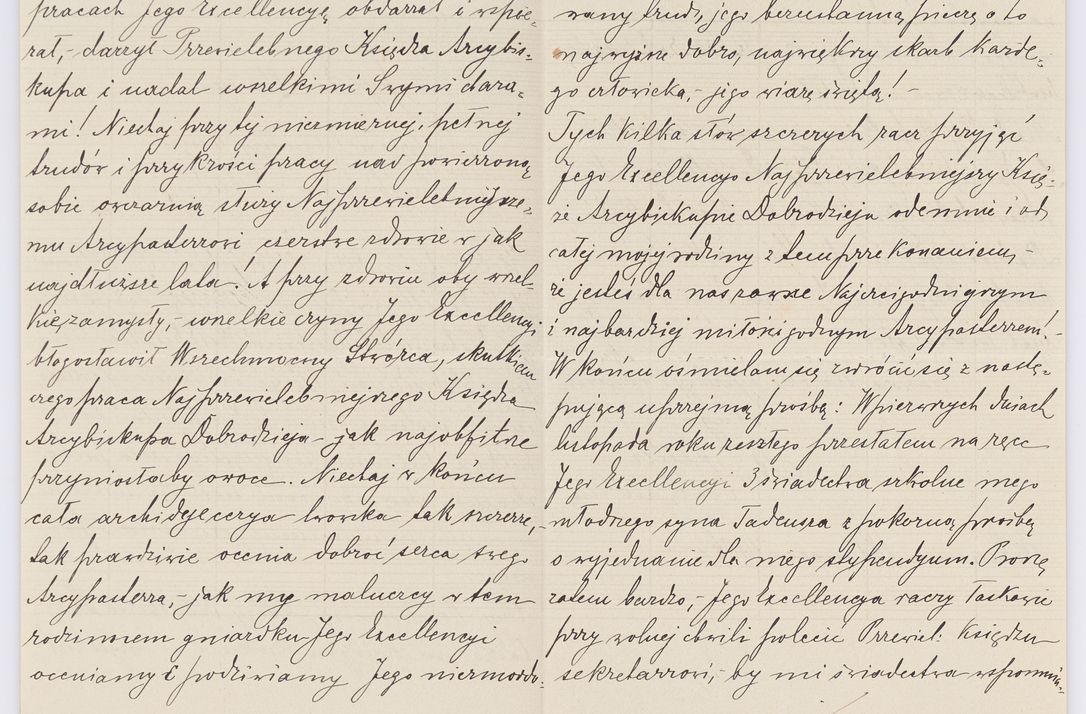 pracach Jego Excellencyę obdarzał i wspie-
rał,- darzył Przewielebnego Księdza Arcybis-
kupa i nadal wszelkimi Swymi dara-
mi! Niechaj przy tej niezmiernej, pełnej
trudów i przykrości pracy nad powierzoną
sobie owczarnią służy Najprzewielebniejsze-
mu Arcypasterzowi czerstwe zdrowie w jak
najdłuższe lata! A przy zdrowiu oby wszel-
kie zamysły,- wszelkie czyny Jego Excellencyi
błogosławił Wszechmocny Stwórca, skutkiem
czego praca Najprzewielebniejszego Księdza
Arcybiskupa Dobrodzieja - jak najobfitsze
przyniosłaby owoce. Niechaj w końcu
cała archidyecezya lwowska tak szczerze,-
tak prawdziwie ocenia dobroć serca swego
Arcypasterza,- jak my maluczcy w tem
rodzinnem gniazdku Jego Excellencyi
oceniamy i podziwiamy Jego niezmordo-
wany trud, jego bezustanną pieczę o to
najwyższe dobro, największy skarb każde-
go człowieka,- jego wiarę świętą! -
Tych kilka słów szczerych racz przyjąć
Jego Excellencyo Najprzewielebniejszy Księ-
że Arcybiskupie Dobrodzieju odemnie i od
całej mojej rodziny z tem przekonaniem,-
że jesteś dla nas zawsze Najczcigodniejszym
i najbardziej miłości godnym Arcypasterzem!-
W końcu ośmielam się zwrócić się z nastę-
pującą uprzejmą prośbą: W pierwszych dniach
listopada roku zeszłego przesłałem na ręce
Jego Excellencyi 3 świadectwa szkolne mego
młodszego syna Tadeusza z pokorną prośbą
o wyjednanie dla niego stypendyum. Proszę
zatem bardzo,- Jego Excellencya raczy łaskawie
przy wolnej chwili polecić Przewiel: Księdzu
sekretarzowi,- by mi świadectwa wspomnia-